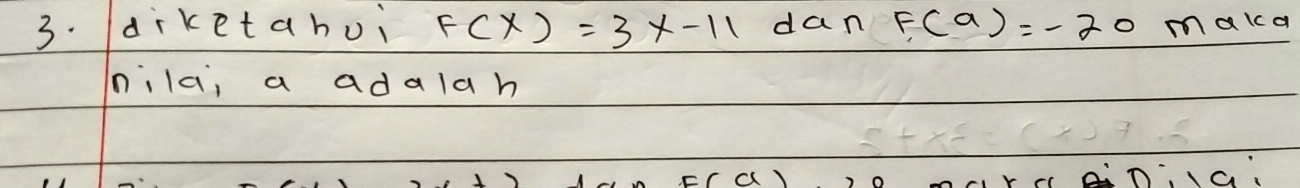 3. diketahui F(x) = 3x-11 dan F(a) = -20 maka
nilai a adalah
dan F(a)